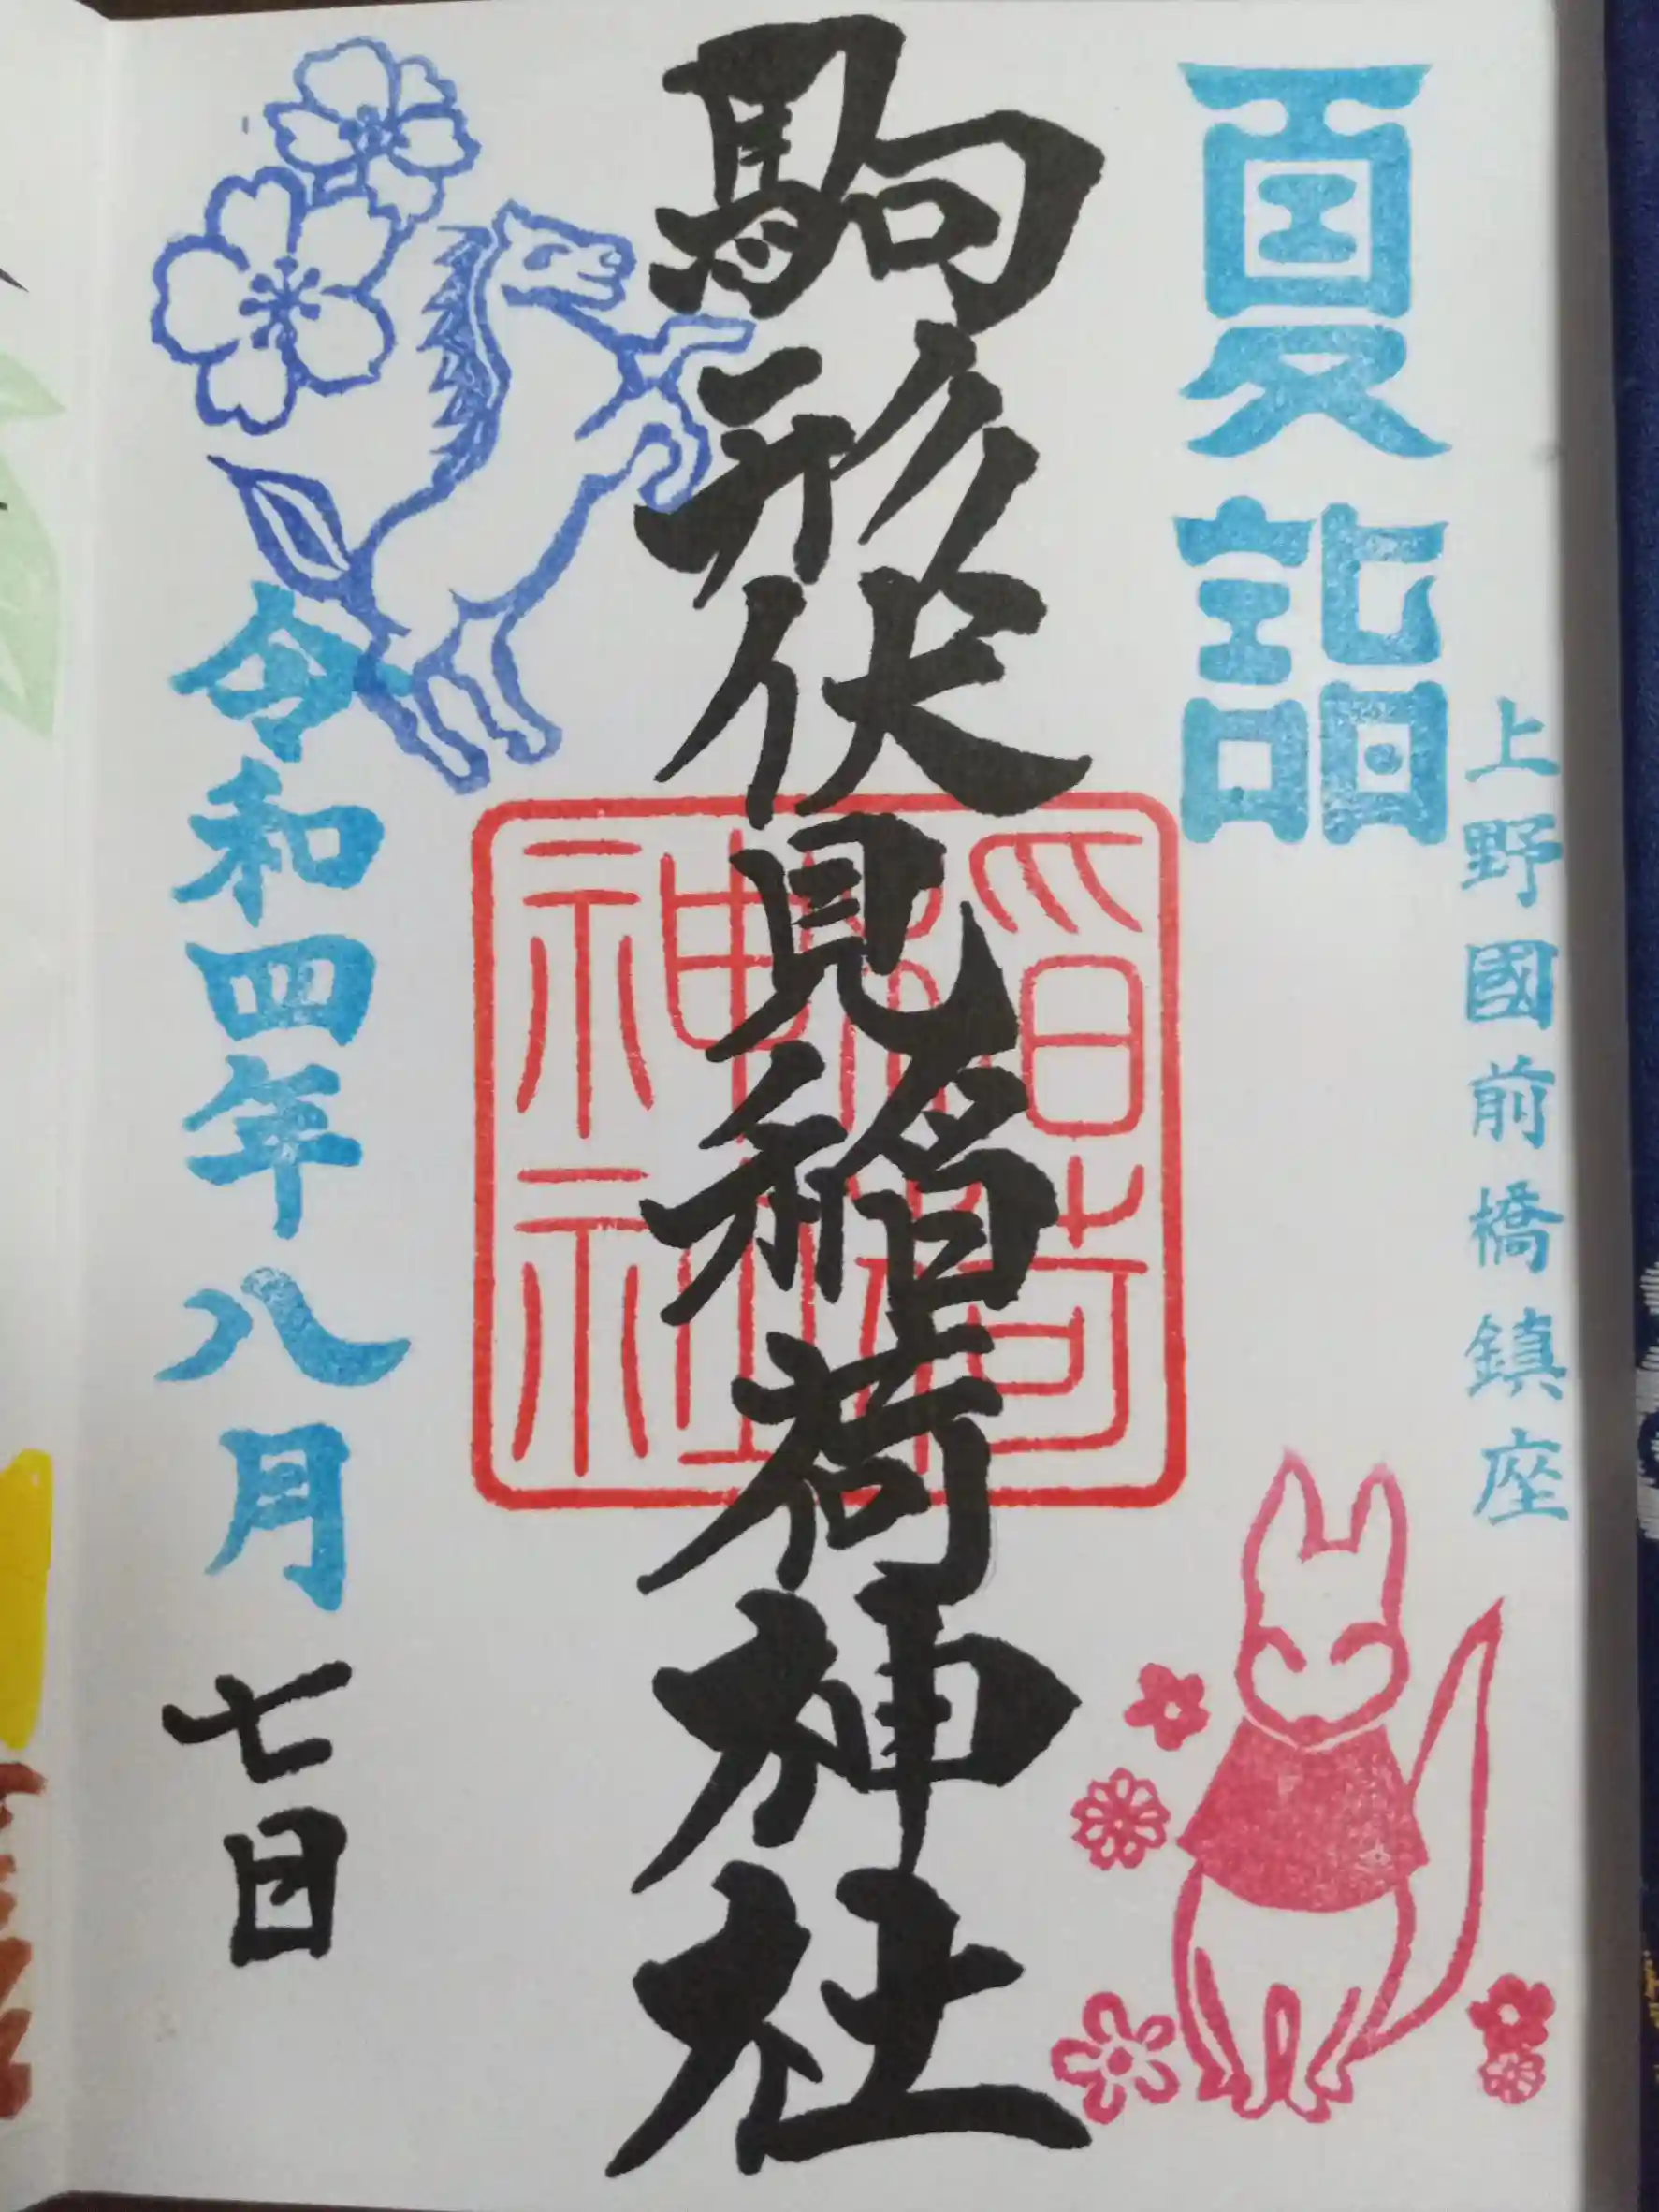 上野國前橋鎮座
夏詣
駒形伏見稲荷神社
稲荷
神社
令和四年八月
七日